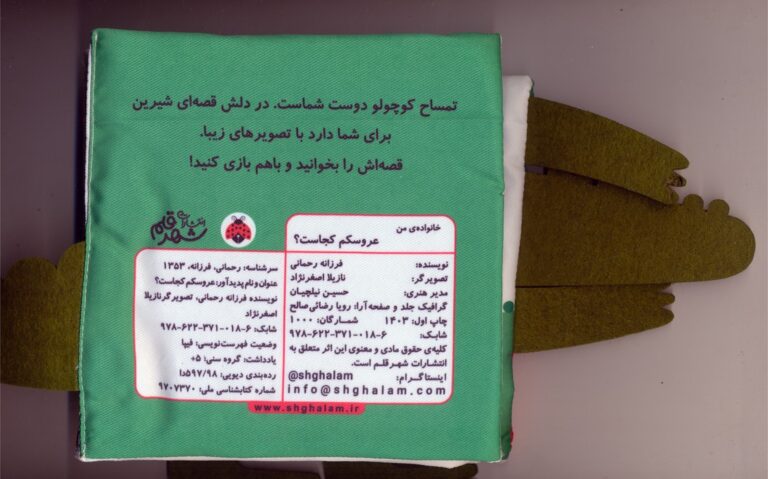 تمساح کوچولو دوست شماست. در دلش قصه‌ای شیرین
برای شما دارد با تصویرهای زیبا.
قصه‌اش را بخوانید و باهم بازی کنید!
انتشارات
شهر قلم
خانواده‌ی من
عروسکم کجاست؟
نویسنده: فرزانه رحمانی
تصویرگر: نازیلا اصغرنژاد
مدیر هنری: حسین نیلچیان
گرافیک جلد و صفحه‌آرا: رویا رضائی‌صالح
چاپ اول: ۱۴۰۳ شمارگان: ۱۰۰۰
شابک: ۹۷۸-۶۲۲-۳۷۱-۰۱۸-۶
کلیه‌ی حقوق مادی و معنوی این اثر متعلق به
انتشارات شهر قلم است.
اینستاگرام: @shghalam
info@shghalam.com
سرشناسه: رحمانی، فرزانه، ۱۳۵۳
عنوان و نام پدیدآور: عروسکم کجاست؟
نویسنده فرزانه رحمانی، تصویرگر نازیلا
اصغرنژاد
شابک: ۹۷۸-۶۲۲-۳۷۱-۰۱۸-۶
وضعیت فهرست‌نویسی: فیپا
یادداشت: گروه سنی: ۵+
رده‌بندی دیویی: ۵۹۷/۹۸دا
شماره کتابشناسی ملی: ۹۷۰۷۳۷۰
www.shghalam.ir